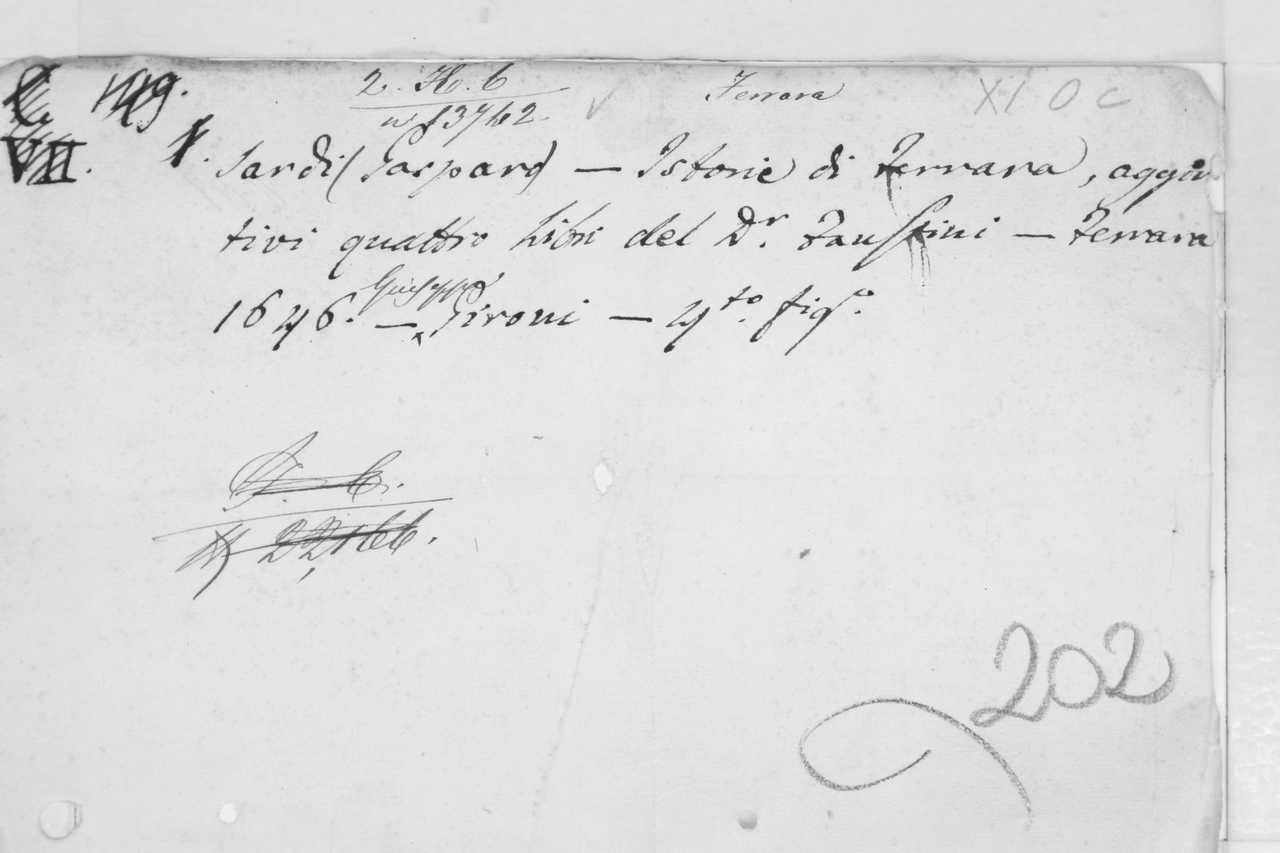 149. 2. Ho. 6 Ferrara XI O C
n 13742
VII. Sardi (Gasparo) — Istorie di Ferrara, aggiun
tivi quattro libri del Dr. Faustini — Ferrara
1646. — Giuseppe Gironi — 4to. figo.
22,166.
202